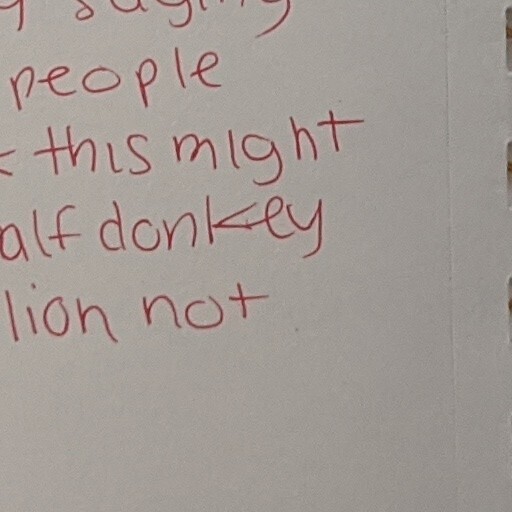 saying
people
this might
alf donkey
lion not